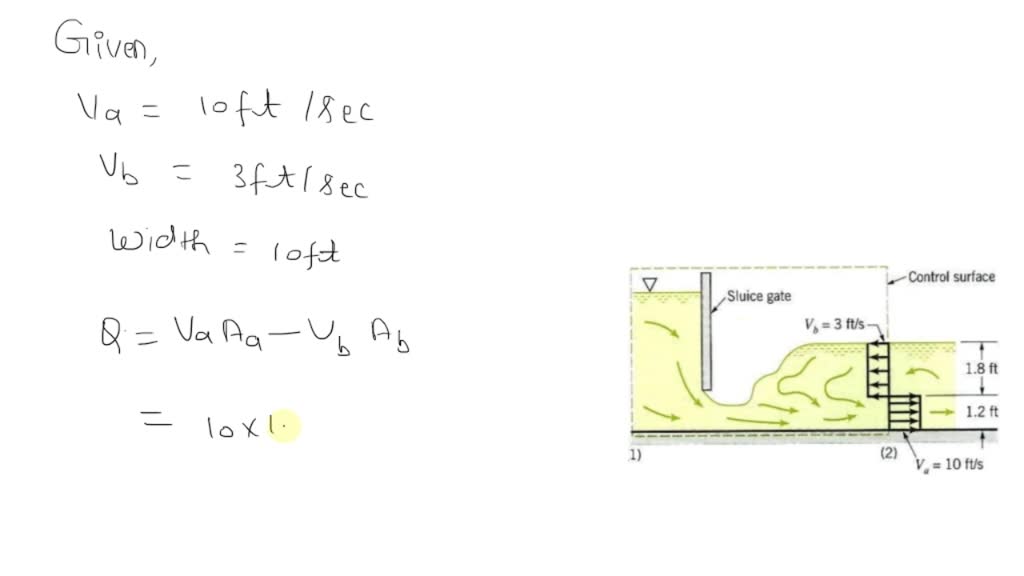 Given,
Va = 10ft /sec
Vb = 3ft/sec
Width = 10ft
Q = VaAa - Vb Ab
= 10x1.
Control surface
Sluice gate
Vb = 3 ft/s
1.8 ft
1.2 ft
1)
(2)
Va = 10 ft/s